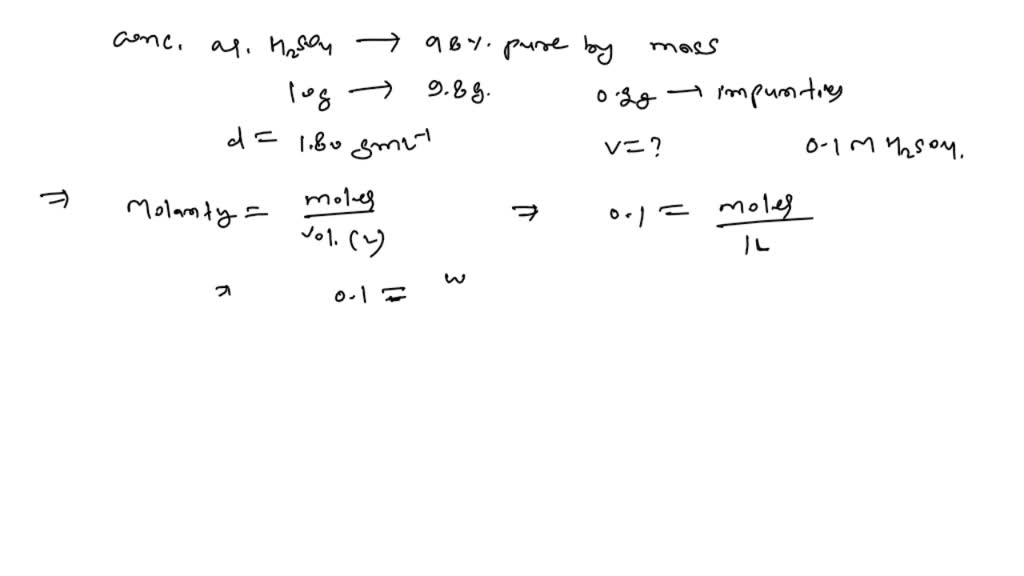 conc. aq. H₂SO₄ → 98%. pure by mass
10g → 9.8g. 0.2g → impurities
d = 1.80 gmL⁻¹ v = ? 0.1 M H₂SO₄.
⇒ Molarity = moles / vol. (L) ⇒ 0.1 = moles / 1L
⇒ 0.1 = w